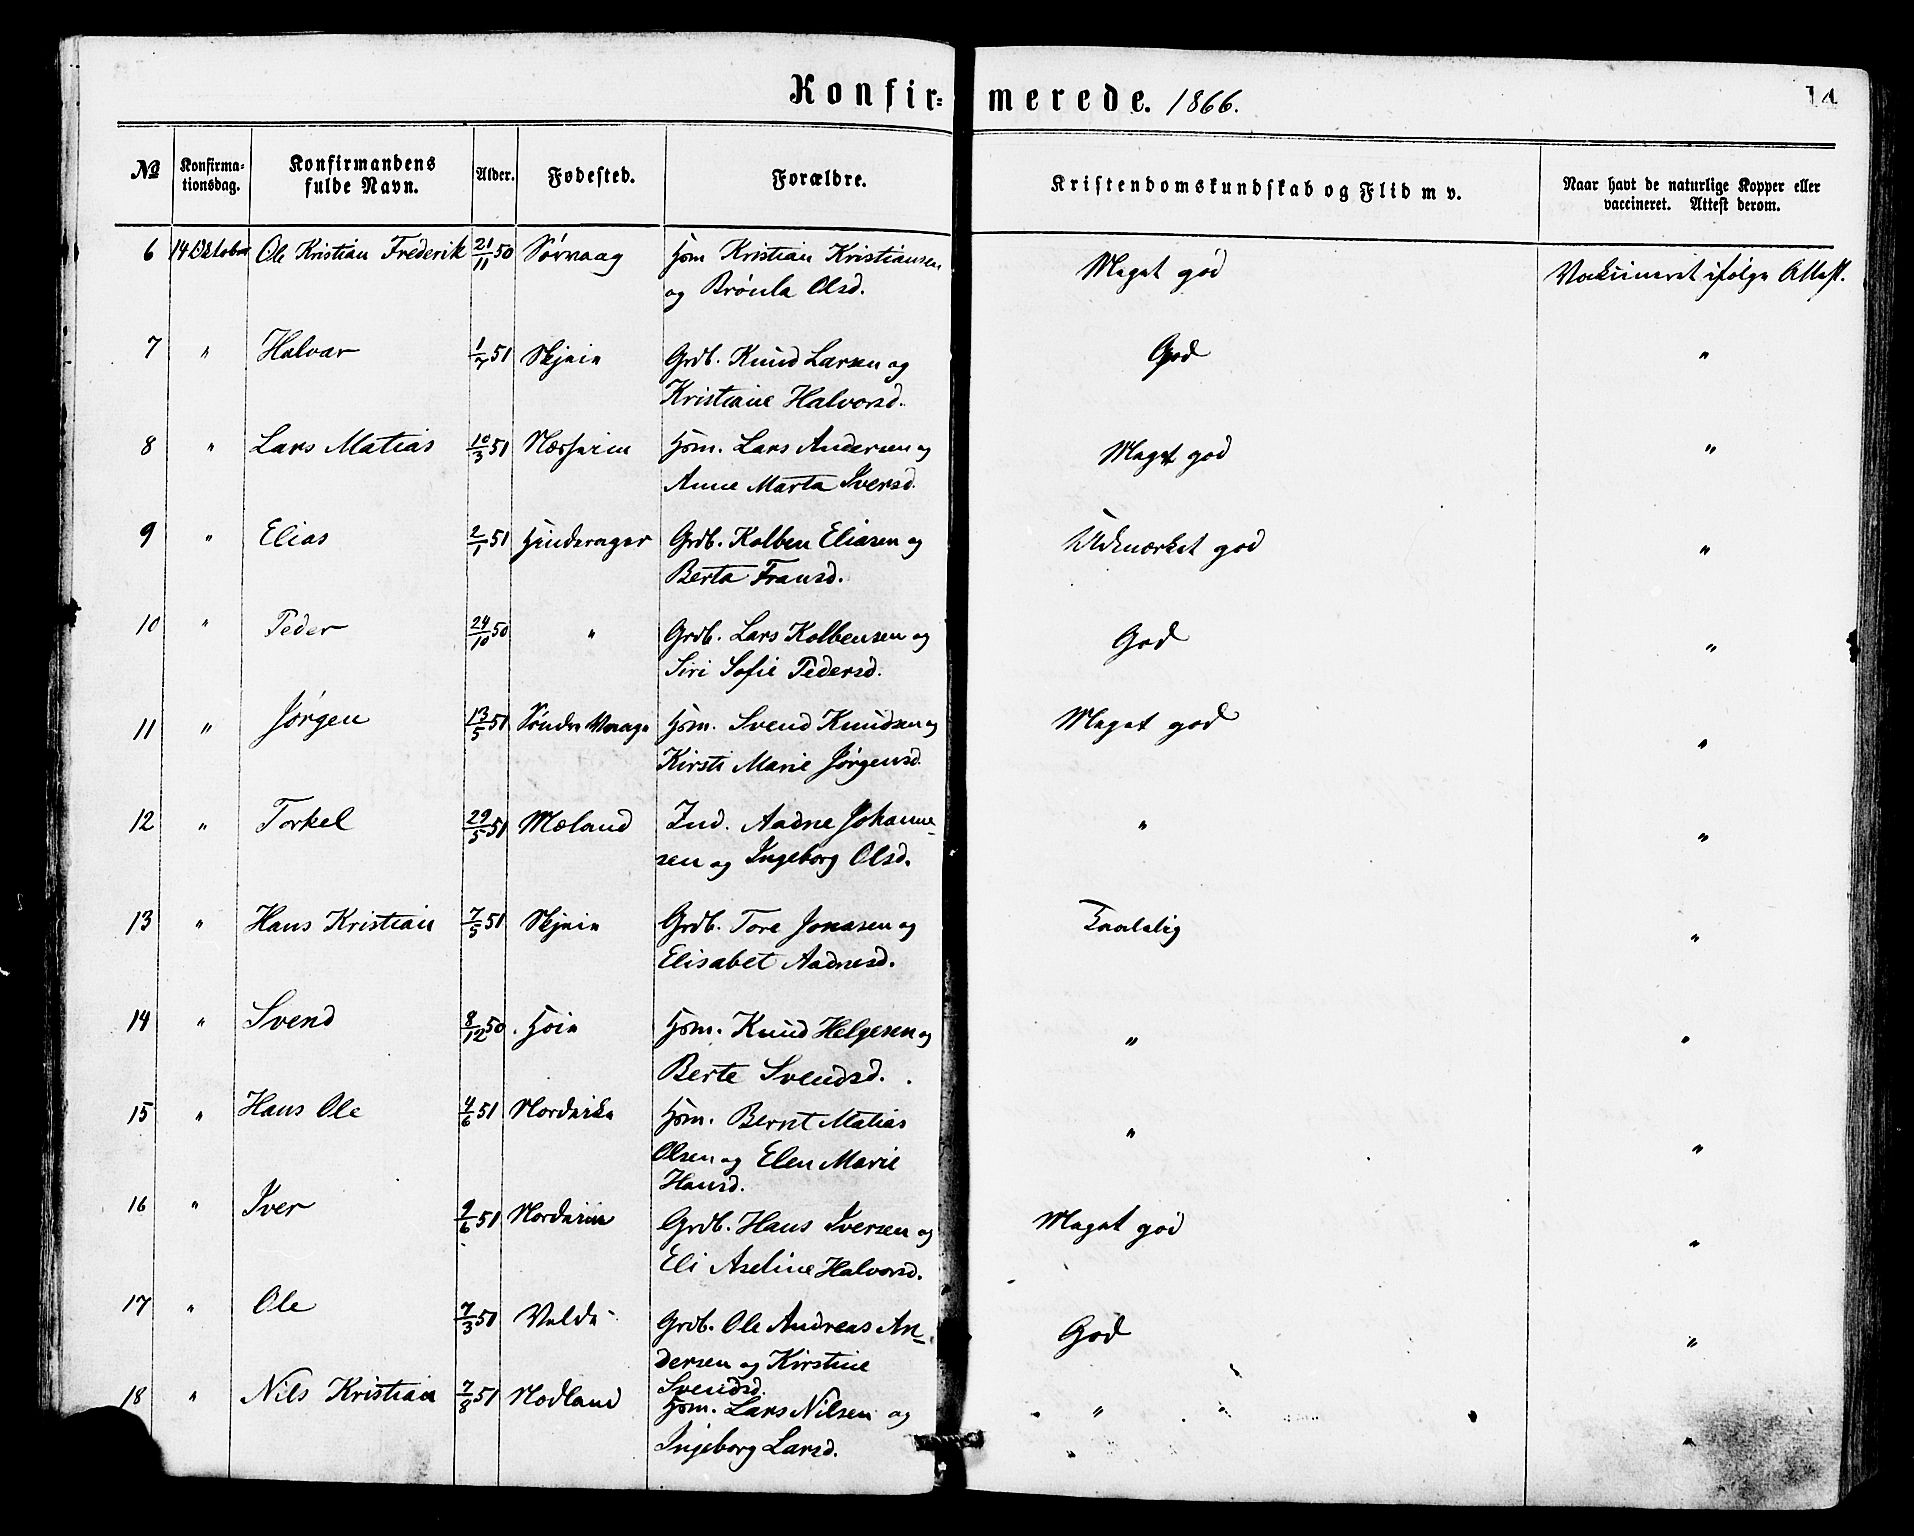 Konfirmerede. 1866.
14
No
Konfirmationsdag.
Konfirmandens fulde Navn.
Alder.
Fødested.
Forældre.
Kristendomskundskab og Flid m v.
Naar havt de naturlige Kopper eller vaccineret. Attest derom.
6 14 Oktober Ole Kristian Frederik 21/11 50 Sørvaag Hsm Kristian Kristiansen Meget god Vakcineret ifølge Attest.
og Brønla Olsd.
7 " Halvar 1/7 51 Skjein Grdb. Knud Larsen og God "
Kristiane Halvorsd.
8 " Lars Matias 10/3 51 Hsm. Lars Andersen og Meget god "
Anne Marta Iversd.
9 " Elias 2/1 51 Hinderager Grdb. Kolben Eliasen og Udmærket god "
Berta Fransd.
10 " Peder 24/10 50 " Grdb. Lars Kolbensen og God "
Siri Sofie Pedersd.
11 " Jørgen 13/5 51 Søndre Vaage Hsm. Svend Knudsen og Meget god "
Kirsti Marie Jørgensd.
12 " Torkel 29/5 51 Mæland Ind. Aadne Johanne- " "
sen og Ingeborg Olsd.
13 " Hans Kristian 7/5 51 Skjein Grdb. Tore Jonasen og Taalelig "
Elisabet Aadnesd.
14 " Svend 8/12 50 Høie Hsm. Knud Helgesen og " "
Berte Svendsd.
15 " Hans Ole 4/6 51 Hsm. Bernt Matias " "
Olsen og Elen Marie
Hansd.
16 " Iver 9/6 51 Grdb. Hans Iversen og Meget god "
Eli Aseline Halvorsd.
17 " Ole 7/3 51 Grdb. Ole Andreas An- God "
dersen og Kirstine
Svendsd.
18 " Nils Kristian 7/8 51 Nodland Hsm. Lars Nilsen og " "
Ingeborg Larsd.